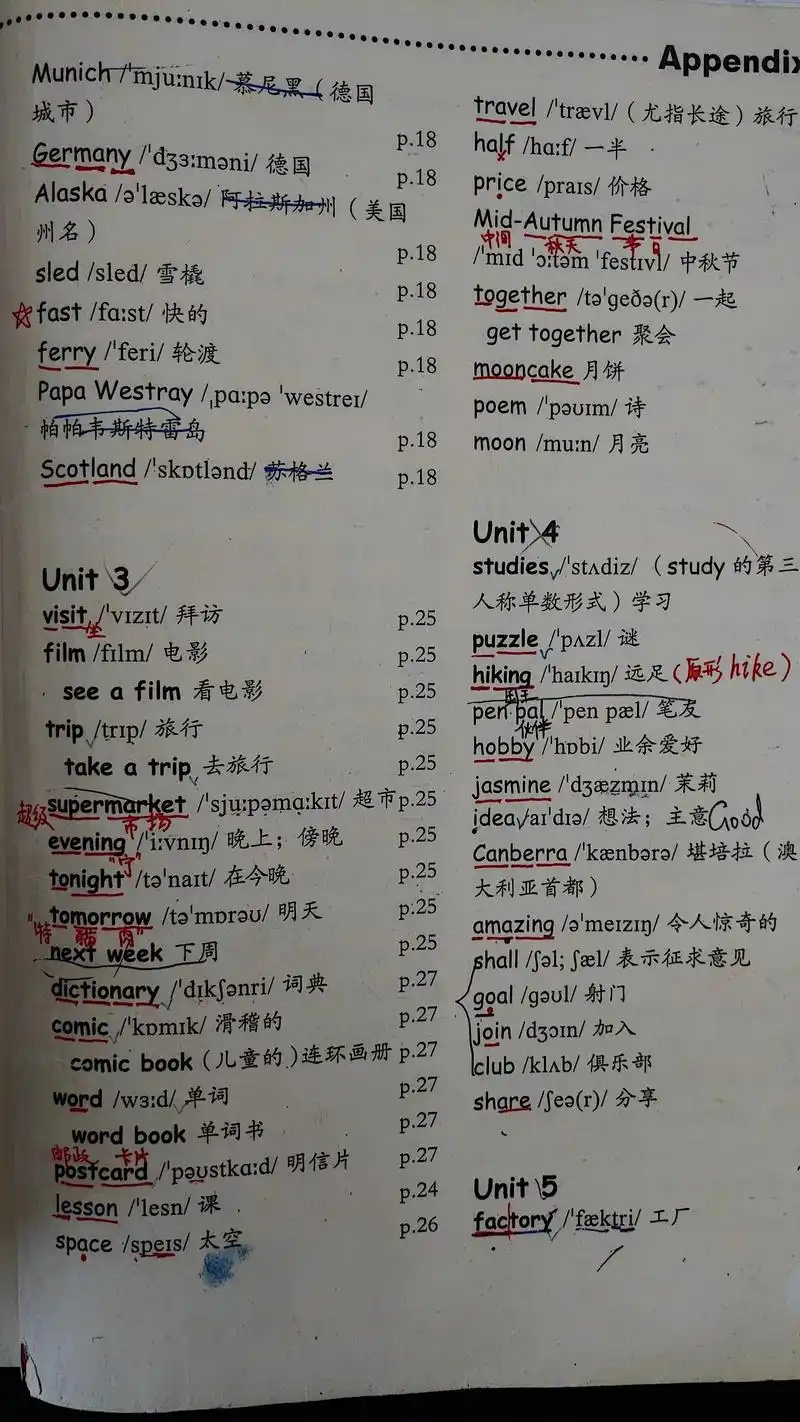 Appendix
Munich /'mju:nɪk/ 慕尼黑（德国
城市）
p.18
Germany /'dʒɜ:məni/ 德国
p.18
Alaska /ə'læskə/ 阿拉斯加州（美国
州名）
p.18
sled /sled/ 雪橇
p.18
fast /fɑ:st/ 快的
p.18
ferry /'feri/ 轮渡
p.18
Papa Westray /ˌpɑ:pə 'westreɪ/
帕帕韦斯特雷岛
p.18
Scotland /'skɒtlənd/ 苏格兰
p.18
Unit 3
visit /'vɪzɪt/ 拜访
p.25
坐
film /fɪlm/ 电影
p.25
see a film 看电影
p.25
trip /trɪp/ 旅行
p.25
take a trip 去旅行
p.25
supermarket /'sju:pəmɑ:kɪt/ 超市
p.25
超级
市场
evening /'i:vnɪŋ/ 晚上；傍晚
p.25
tonight /tə'naɪt/ 在今晚
p.25
tomorrow /tə'mɒrəʊ/ 明天
p.25
next week 下周
p.25
dictionary /'dɪkʃənri/ 词典
p.27
comic /'kɒmɪk/ 滑稽的
p.27
comic book (儿童的)连环画册
p.27
word /wɜ:d/ 单词
p.27
word book 单词书
p.27
邮政 卡片
postcard /'pəʊstkɑ:d/ 明信片
p.27
lesson /'lesn/ 课
p.24
space /speɪs/ 太空
p.26
travel /'trævl/（尤指长途）旅行
half /hɑ:f/ 一半
price /praɪs/ 价格
Mid-Autumn Festival
中间 秋天 节日
/'mɪd 'ɔ:təm 'festɪvl/ 中秋节
together /tə'geðə(r)/ 一起
get together 聚会
mooncake 月饼
poem /'pəʊɪm/ 诗
moon /mu:n/ 月亮
Unit 4
studies /'stʌdiz/（study 的第三
人称单数形式）学习
puzzle /'pʌzl/ 谜
hiking /'haɪkɪŋ/ 远足(原形hike)
pen pal /'pen pæl/ 笔友
伙伴
hobby /'hɒbi/ 业余爱好
jasmine /'dʒæzmɪn/ 茉莉
idea /aɪ'dɪə/ 想法；主意 Good
Canberra /'kænbərə/ 堪培拉（澳
大利亚首都）
amazing /ə'meɪzɪŋ/ 令人惊奇的
shall /ʃəl; ʃæl/ 表示征求意见
goal /gəʊl/ 射门
join /dʒɔɪn/ 加入
club /klʌb/ 俱乐部
share /ʃeə(r)/ 分享
Unit 5
factory /'fæktri/ 工厂